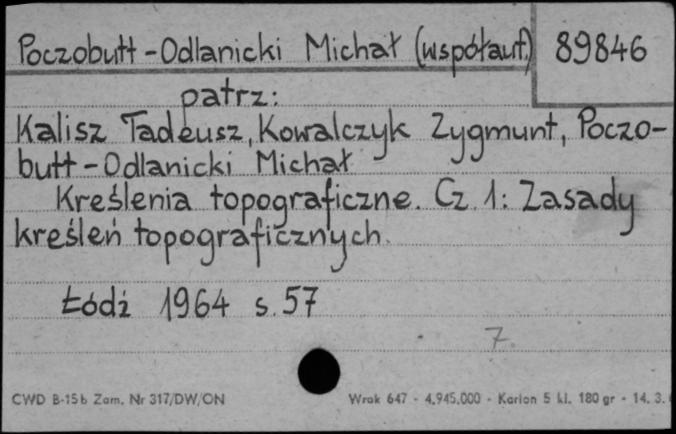 Poczobutt-Odlanicki Michał (współaut.) 89846
patrz:
Kalisz Tadeusz, Kowalczyk Zygmunt, Poczo-
butt-Odlanicki Michał
Kreślenia topograficzne. Cz. 1: Zasady
kreśleń topograficznych.
Łódź 1964 s. 57
7.
CWD B-15b Zam. Nr 317/DW/ON Wrak 647 - 4.945.000 - Karton 5 kl. 180 gr - 14. 3.